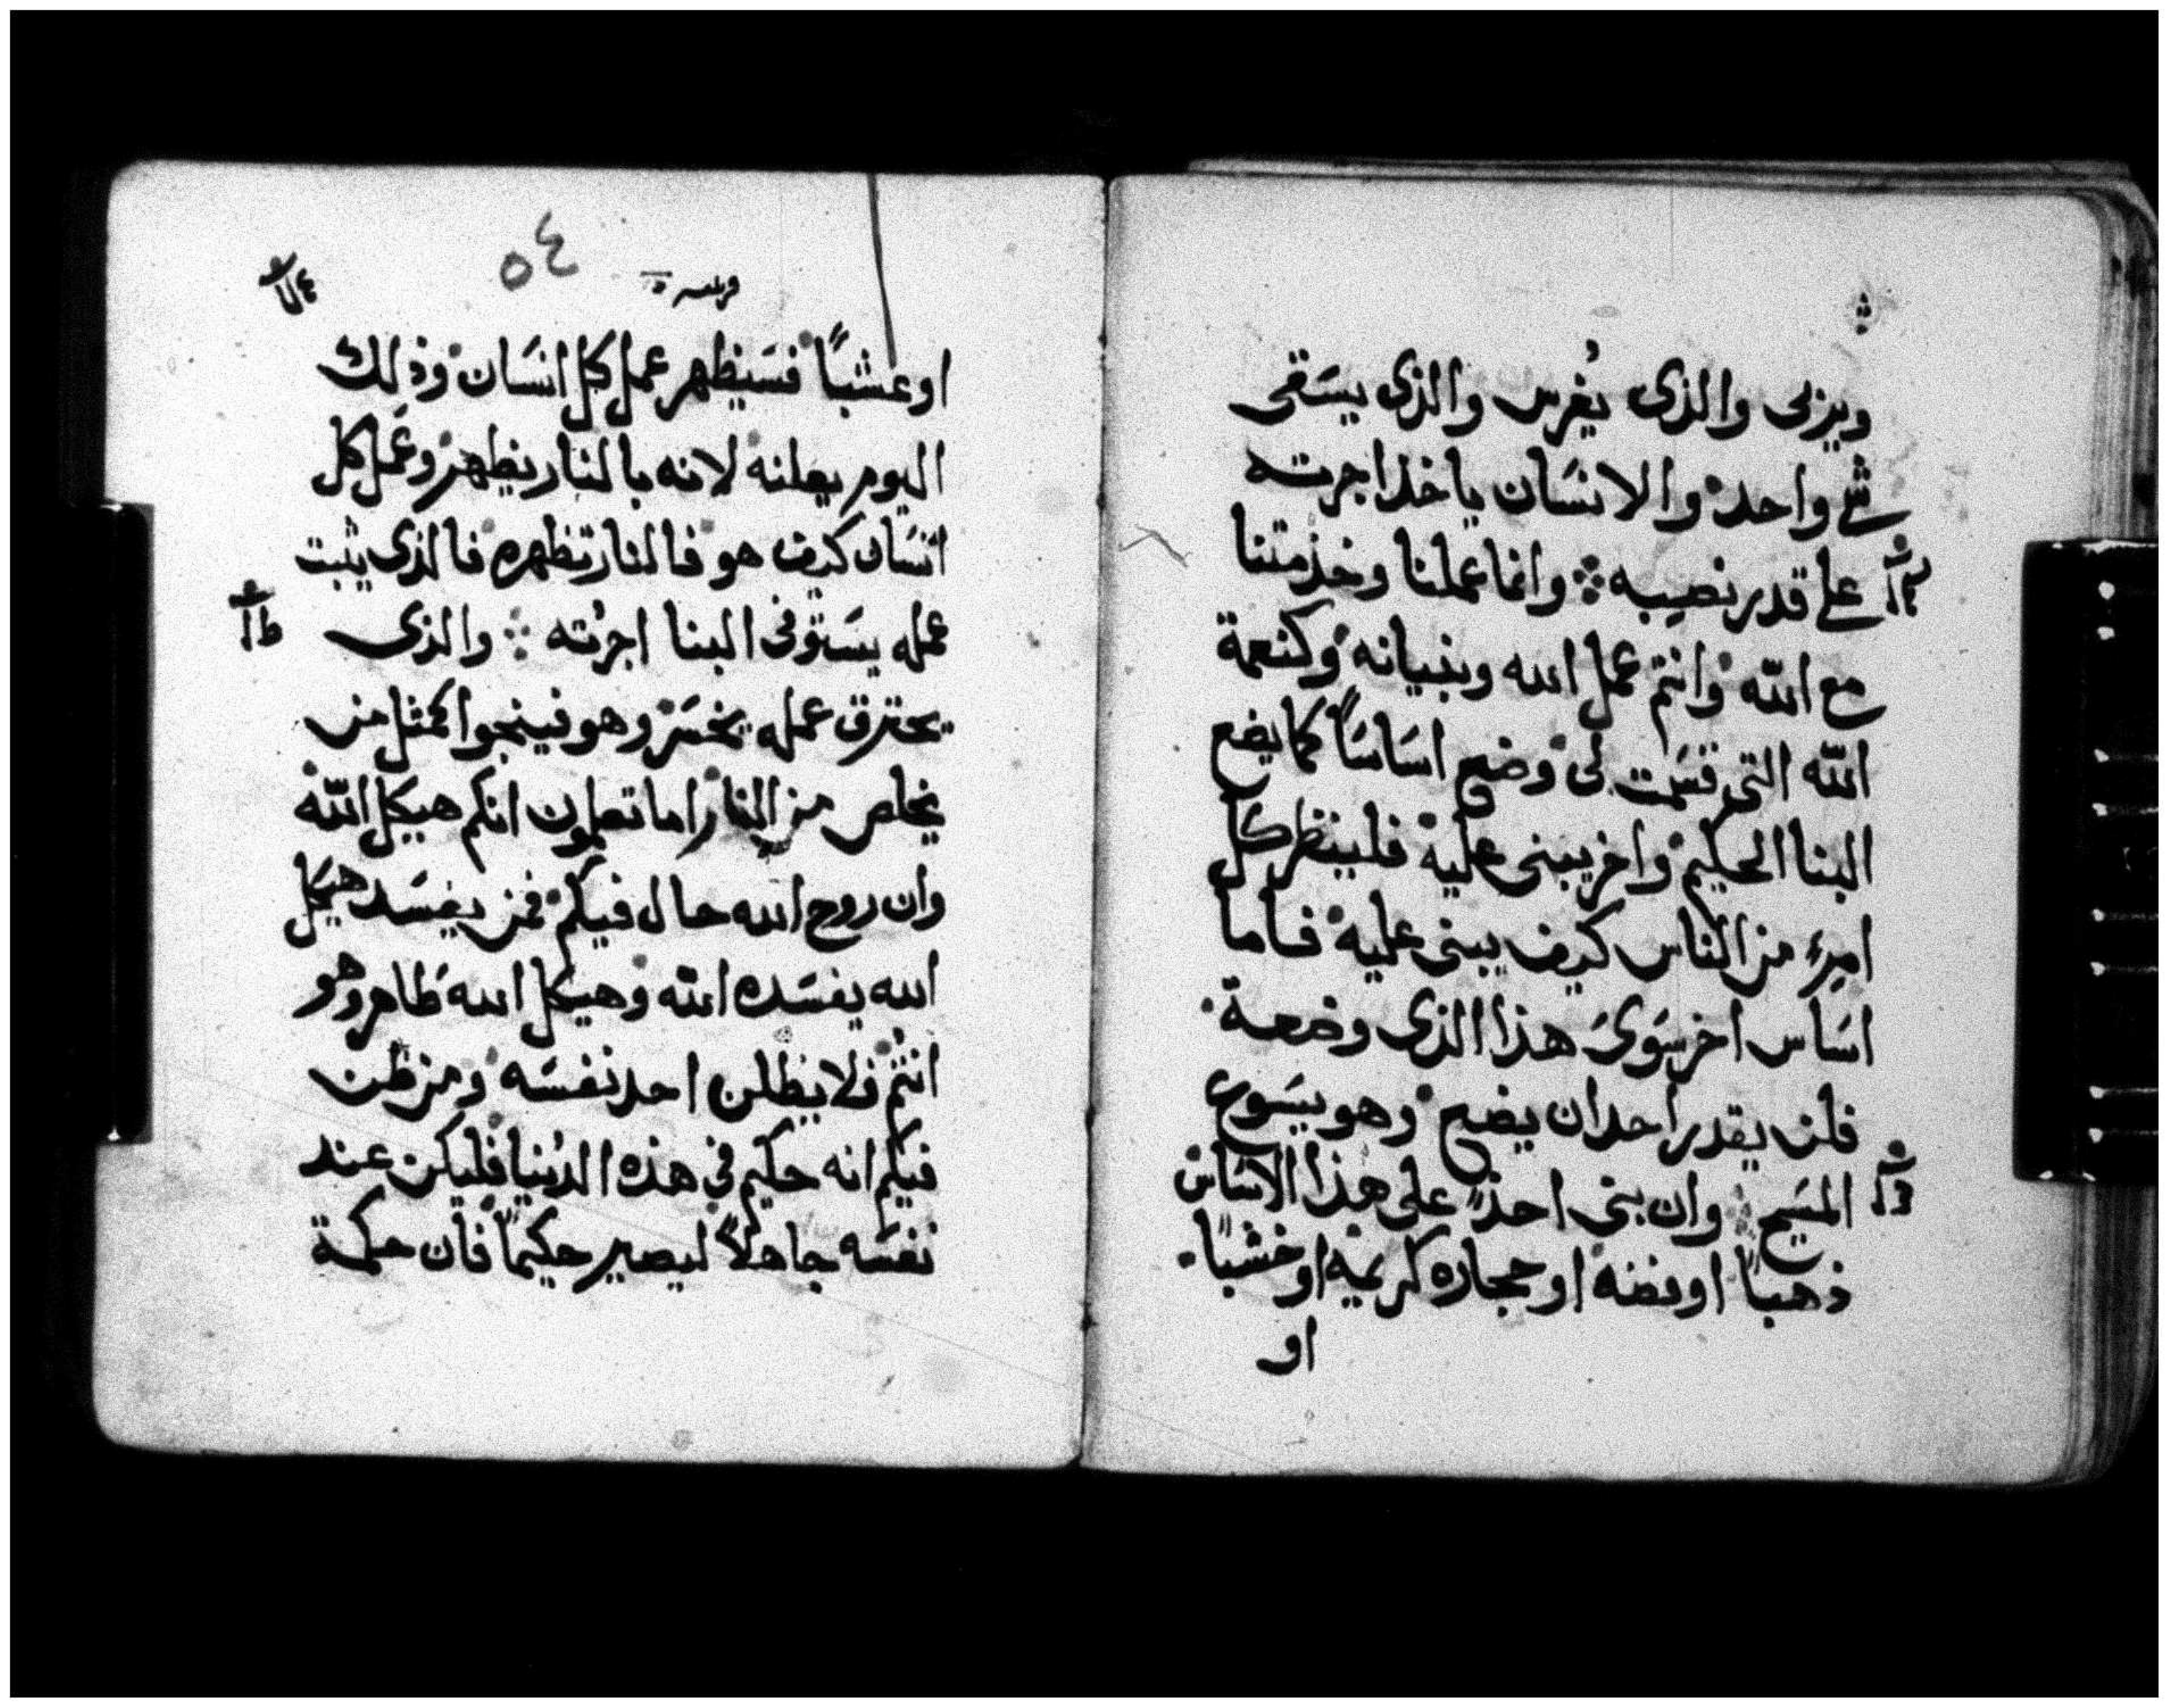 ويربى والذى يُغرس والذى يسَقى
شى واحد والانسَان ياخد اجرته
على قدر نصيبه ⁘ وانما عملنا وخذمتنا
مع الله وانتم عمل الله وبنيانه وكنعمة
الله التى قسَمت لى وضع اسَاسَاً كما يضع
البنا الحكيم واخر يبنى عليه فلينظر كل
امرء من الناس كيف يبنى عليه فاما
اسَاس اخر سَوىَ هذا الذى وضعة
فلن يقدر احد ان يضع وهو يسَوع
المسَيح ⁘ وان بنى احدٌ على هذا الاسَاس
ذهباً او فضه او حجاره كريمه او خشباً
او
٥٤
او عشباً فسَيظهر عمل كل انسَان وذلك
اليوم يعلنه لانه بالنار يظهر وعَمل كل
انسَان كيف هو فالنار تظهره فالذى يثبت
عمله يسَتوفى البنا اجرته ⁘ والذى
يحترق عمله يخسَر وهو فينجوا كمثل من
يخلص من النار اما تعلمون انكم هيكل الله
وان روح الله حال فيكم فمن يفسَد هيكل
الله يفسَده الله وهيكل الله طَاهر وهو
انتم فلا يظلن احد نفسَه ومن ظن
فيكم انه حكيم فى هذه الدنيا فليكن عند
نفسَه جاهلاً ليصير حكيماً فان حكمة